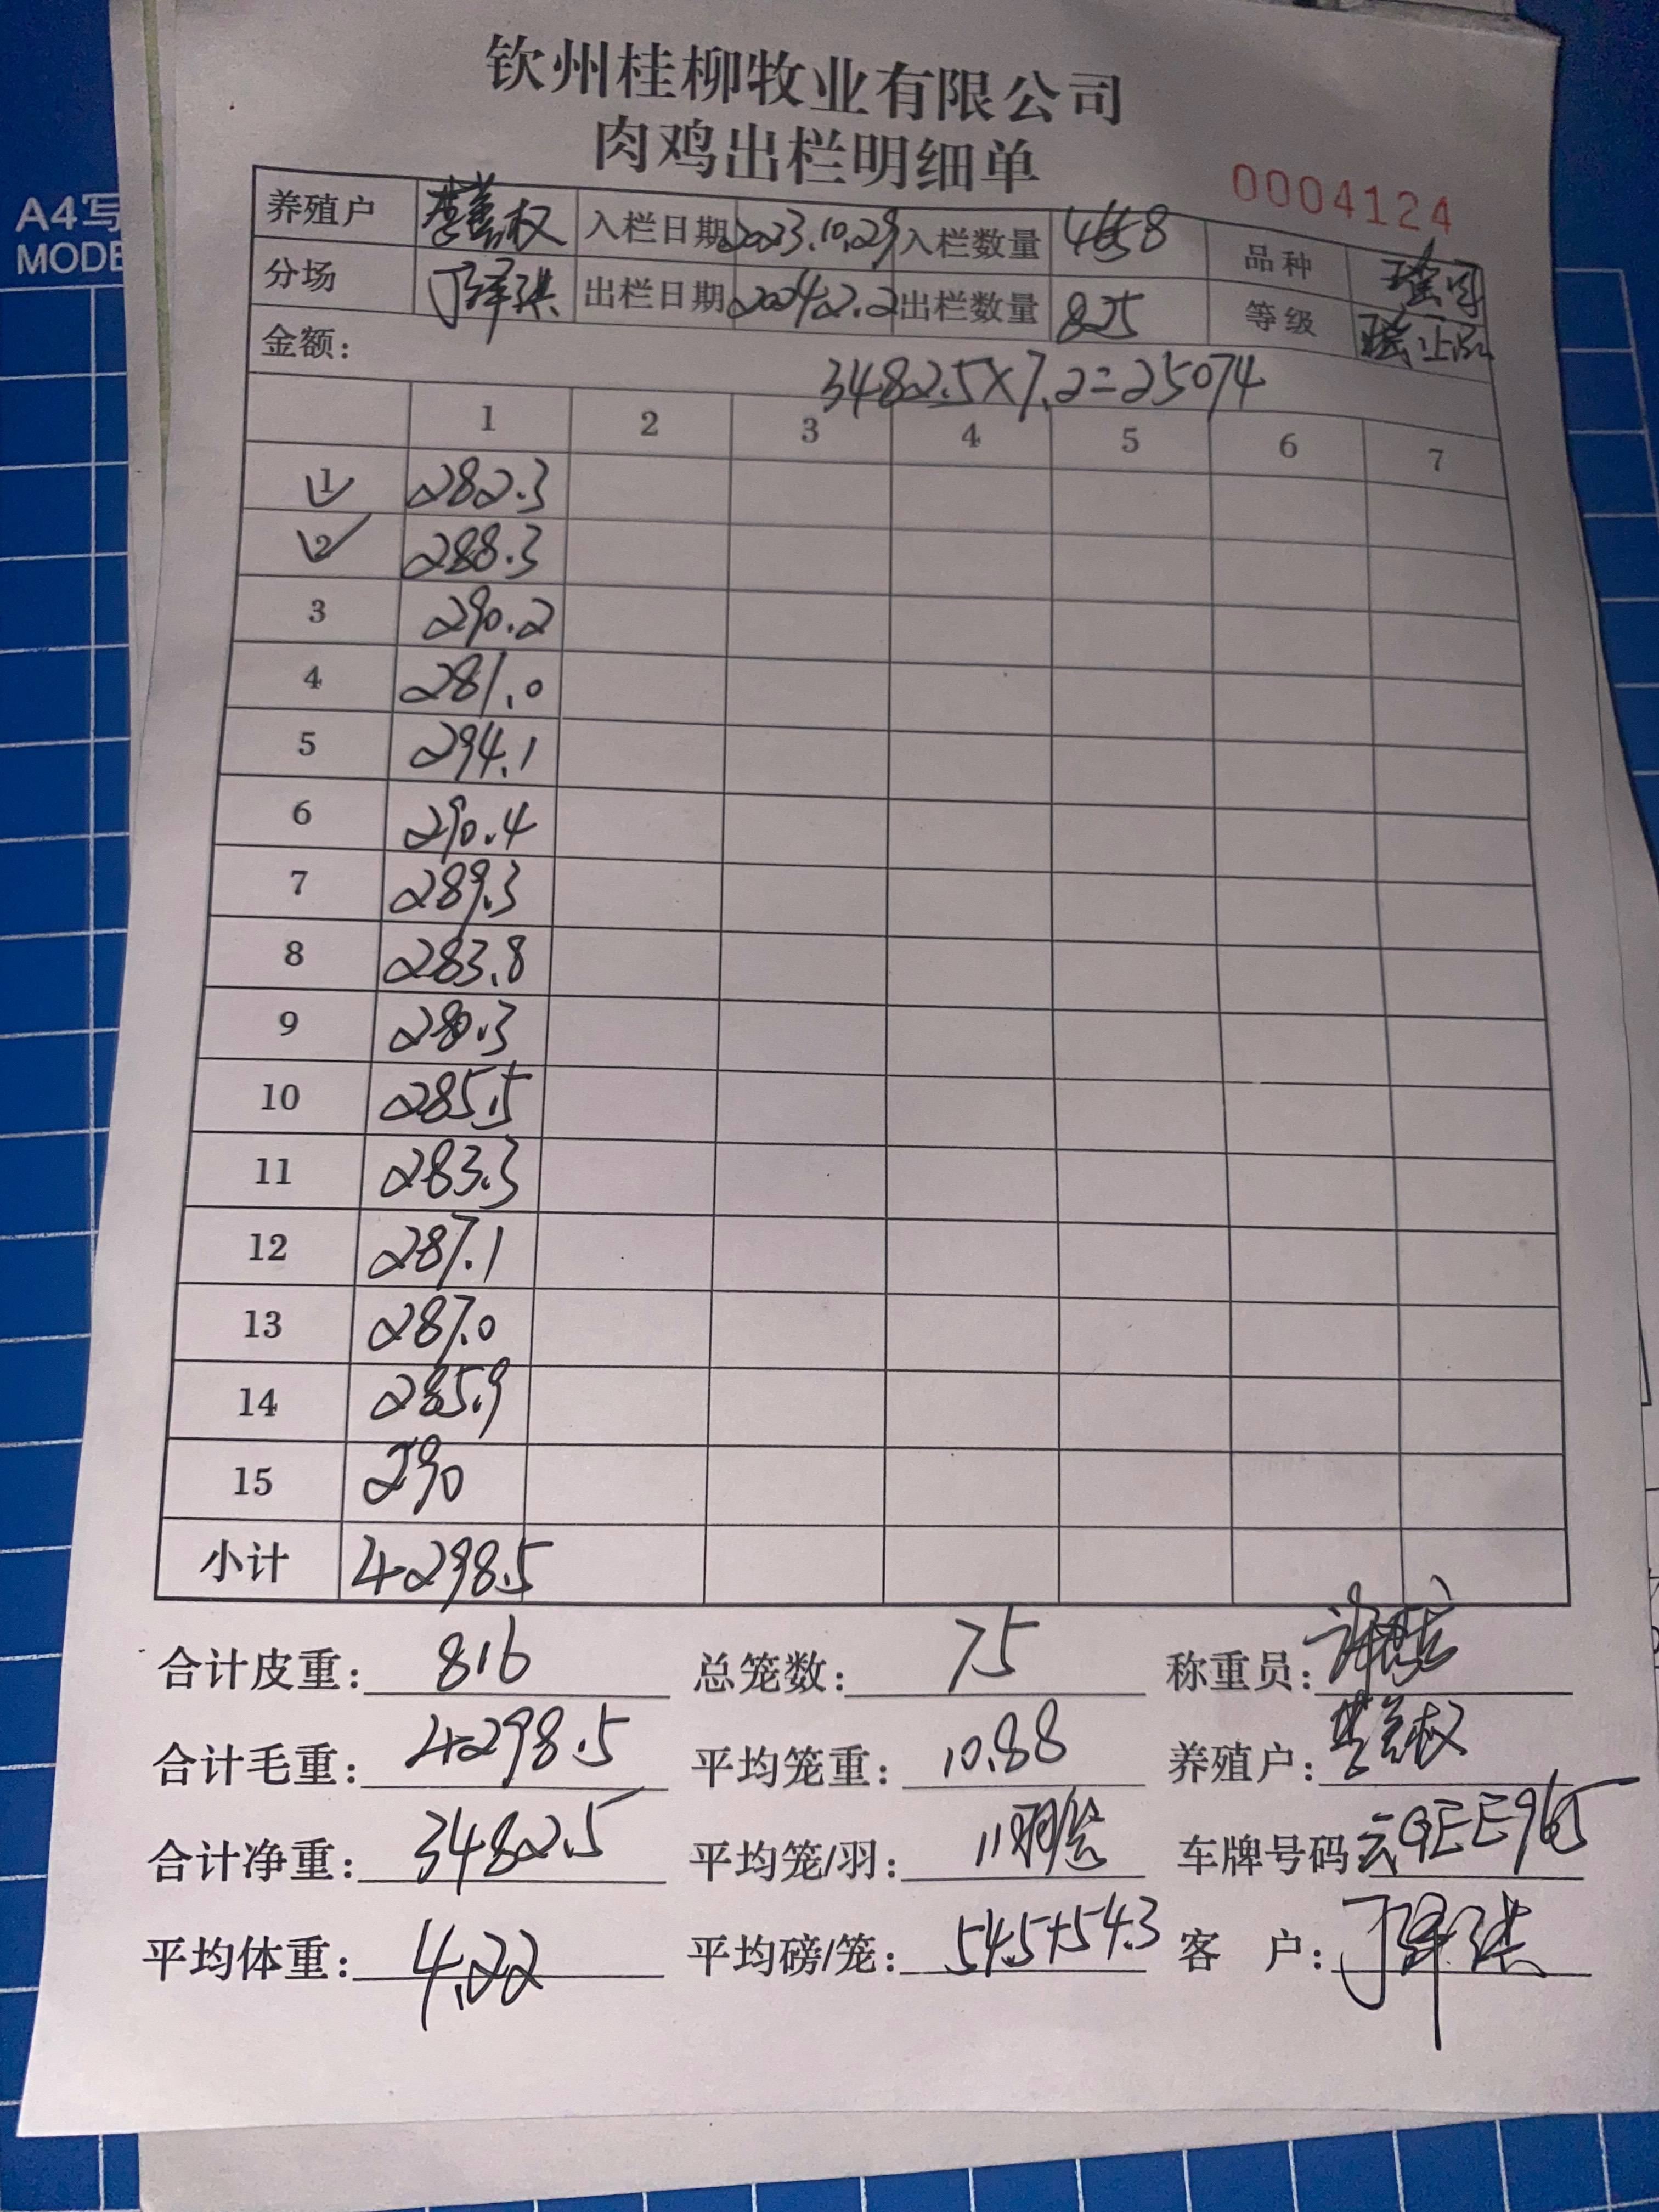 钦州桂柳牧业有限公司
肉鸡出栏明细单
0004124
A4写
MODE
养殖户 权 入栏日期 2023.10.29 入栏数量 4658 品种
分场 丁泽琪 出栏日期 2024.2.2 出栏数量 825 等级
金额: 3482.5×7.2=25074
1 2 3 4 5 6 7
1 282.3
2 288.3
3 290.2
4 281.0
5 294.1
6 290.4
7 289.3
8 283.8
9 280.3
10 285.5
11 283.3
12 287.1
13 287.0
14 285.9
15 290
小计 4298.5
合计皮重: 816 总笼数: 75 称重员: 许
合计毛重: 4298.5 平均笼重: 10.88 养殖户: 权
合计净重: 3482.5 平均笼/羽: 11羽 车牌号码 云GEE965
平均体重: 4.22 平均磅/笼: 54.5+54.3 客 户: 丁泽琪